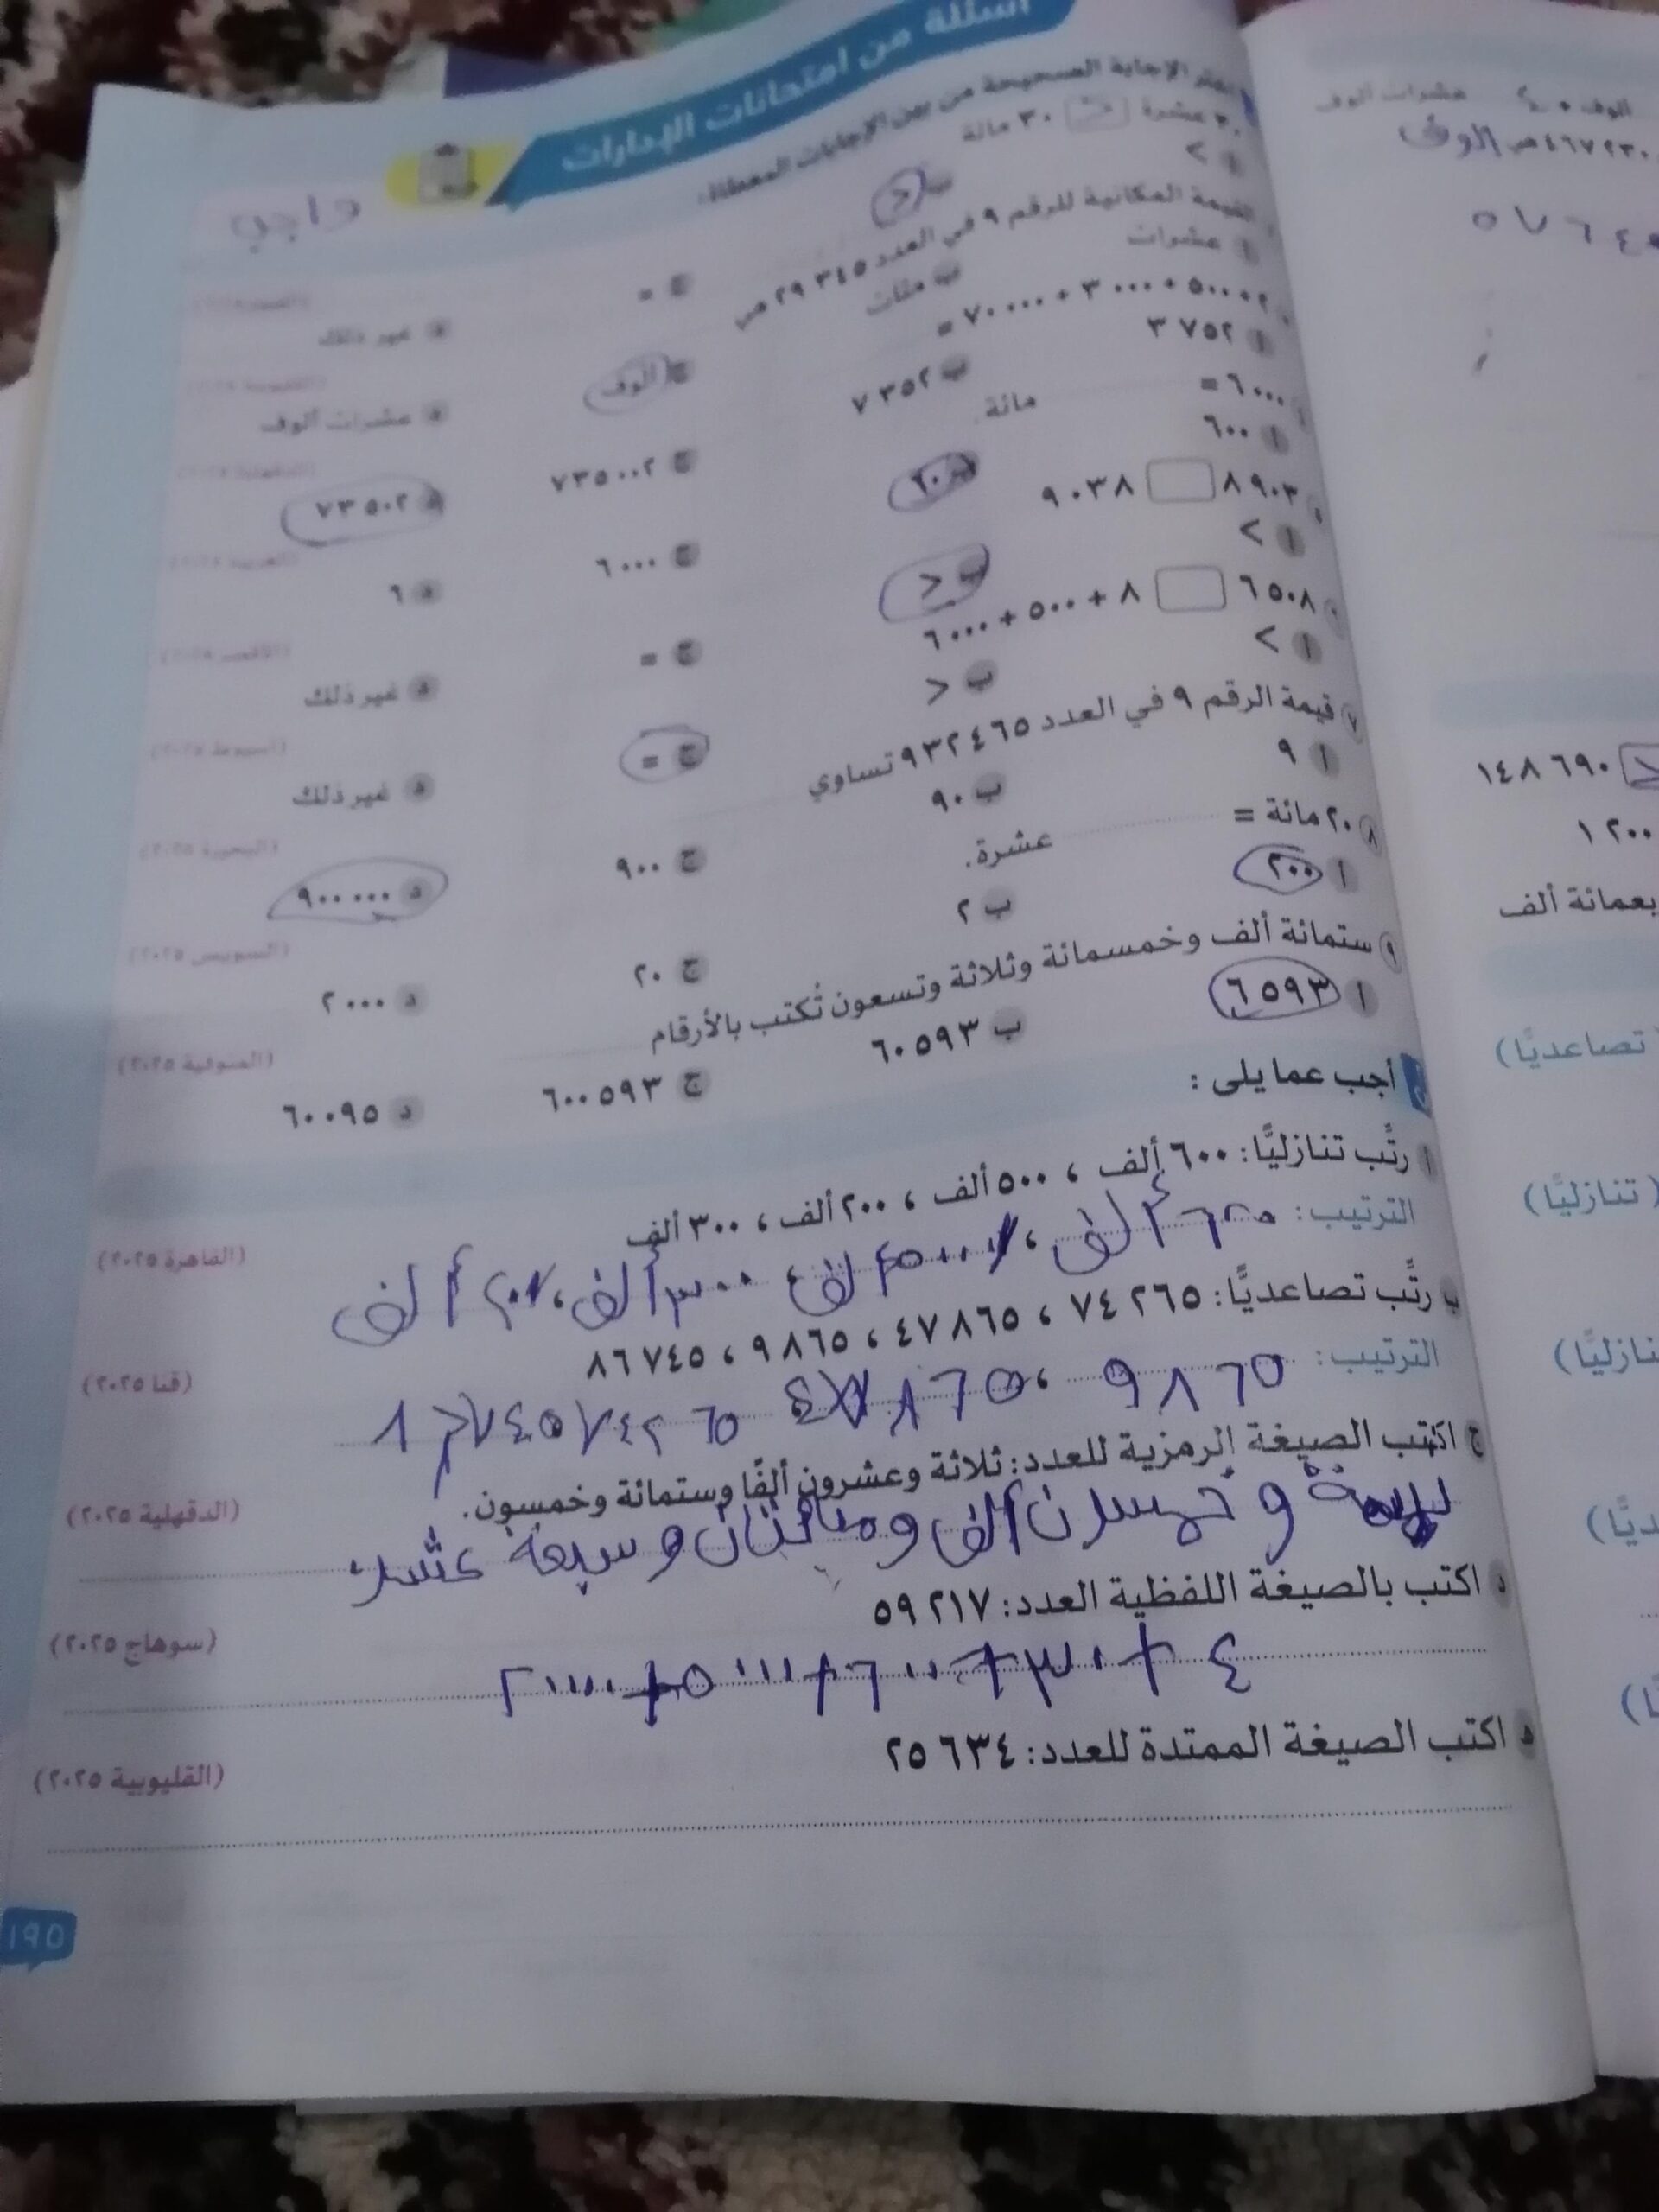 أسئلة من امتحانات الإدارات
واجب
اختر الإجابة الصحيحة من بين الإجابات المعطاة:
٣٠ عشرة < ٣٠ مائة
أ > ب < ج = د غير ذلك
القيمة المكانية للرقم ٩ في العدد ٢٩٣٤٥ هي
أ عشرات ب مئات ج ألوف د عشرات ألوف
٢ + ٥٠٠ + ٣٠٠٠ + ٧٠٠٠٠ =
أ ٣٧٥٢ ب ٧٣٥٢ ج ٧٣٥٠٠٢ د ٧٣٥٠٢
٦٠٠٠ = مائة.
أ ٦٠٠ ب ٦٠ ج ٦٠٠٠ د ٦
٨٩٠٣ ٩٠٣٨
أ > ب < ج = د غير ذلك
٦٥٠٨ ٨ + ٥٠٠ + ٦٠٠٠
أ > ب < ج = د غير ذلك
(أسيوط ٢٠٢٥)
٧ قيمة الرقم ٩ في العدد ٩٣٢٤٦٥ تساوي
أ ٩ ب ٩٠ ج ٩٠٠ د ٩٠٠٠٠٠
(البحيرة ٢٠٢٥)
٨ ٢٠ مائة = عشرة.
أ ٢٠٠ ب ٢ ج ٢٠ د ٢٠٠٠
(السويس ٢٠٢٥)
٩ ستمائة ألف وخمسمائة وثلاثة وتسعون تُكتب بالأرقام
أ ٦٥٩٣ ب ٦٠٥٩٣ ج ٦٠٠٥٩٣ د ٦٠٠٩٥
(المنوفية ٢٠٢٥)
أجب عما يلي :
أ رتِّب تنازليًّا: ٦٠٠ ألف ، ٥٠٠ ألف ، ٢٠٠ ألف ، ٣٠٠ ألف
(القاهرة ٢٠٢٥)
الترتيب: ٦٠٠ ألف ، ٥٠٠ ألف ، ٣٠٠ ألف ، ٢٠٠ ألف
ب رتِّب تصاعديًّا: ٧٤٢٦٥ ، ٤٧٨٦٥ ، ٩٨٦٥ ، ٨٦٧٤٥
(قنا ٢٠٢٥)
الترتيب: ٩٨٦٥ ، ٤٧٨٦٥ ٧٤٢٦٥ ٨٦٧٤٥
ج اكتب الصيغة الرمزية للعدد: ثلاثة وعشرون ألفًا وستمائة وخمسون.
(الدقهلية ٢٠٢٥)
وخمسون ألف ومائتان وسبعة عشر
د اكتب بالصيغة اللفظية العدد: ٥٩٢١٧
(سوهاج ٢٠٢٥)
٤ + ٣٠ + ٦٠٠ + ٥٠٠٠ + ٢٠٠٠٠
ه اكتب الصيغة الممتدة للعدد: ٢٥٦٣٤
(القليوبية ٢٠٢٥)
١٩٥
عشرات ألوف
ألوف
١٤٨٦٩٠
١٢٠٠
ألف
(تصاعديًّا)
(تنازليًّا)